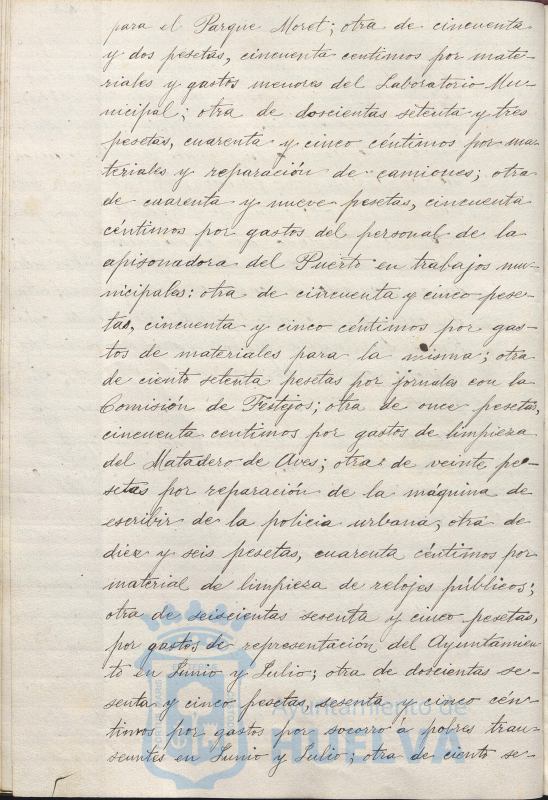 para el Parque Moret; otra de cincuenta
y dos pesetas, cincuenta centimos por mate-
riales y gastos menores del Laboratorio Mu-
nicipal; otra de doscientas setenta y tres
pesetas, cuarenta y cinco céntimos por ma-
teriales y reparación de camiones; otra
de cuarenta y nueve pesetas, cincuenta
céntimos por gastos del personal de la
apisonadora del Puerto en trabajos mu-
nicipales: otra de cincuenta y cinco pese-
tas, cincuenta y cinco céntimos por gas-
tos de materiales para la misma; otra
de ciento setenta pesetas por jornales con la
Comisión de Festejos; otra de once pesetas,
cincuenta centimos por gastos de limpieza
del Matadero de Aves; otra de veinte pe-
setas por reparación de la máquina de
escribir de la policia urbana, otra de
diez y seis pesetas, cuarenta céntimos por
material de limpieza de relojes públicos;
otra de seiscientas sesenta y cinco pesetas,
por gastos de representación del Ayuntamien
to en Junio y Julio; otra de doscientas se-
senta y cinco pesetas, sesenta y cinco cén-
timos por gastos por socorro á pobres tran-
seuntes en Junio y Julio; otra de ciento se-
Ayuntamiento de
HUELVA